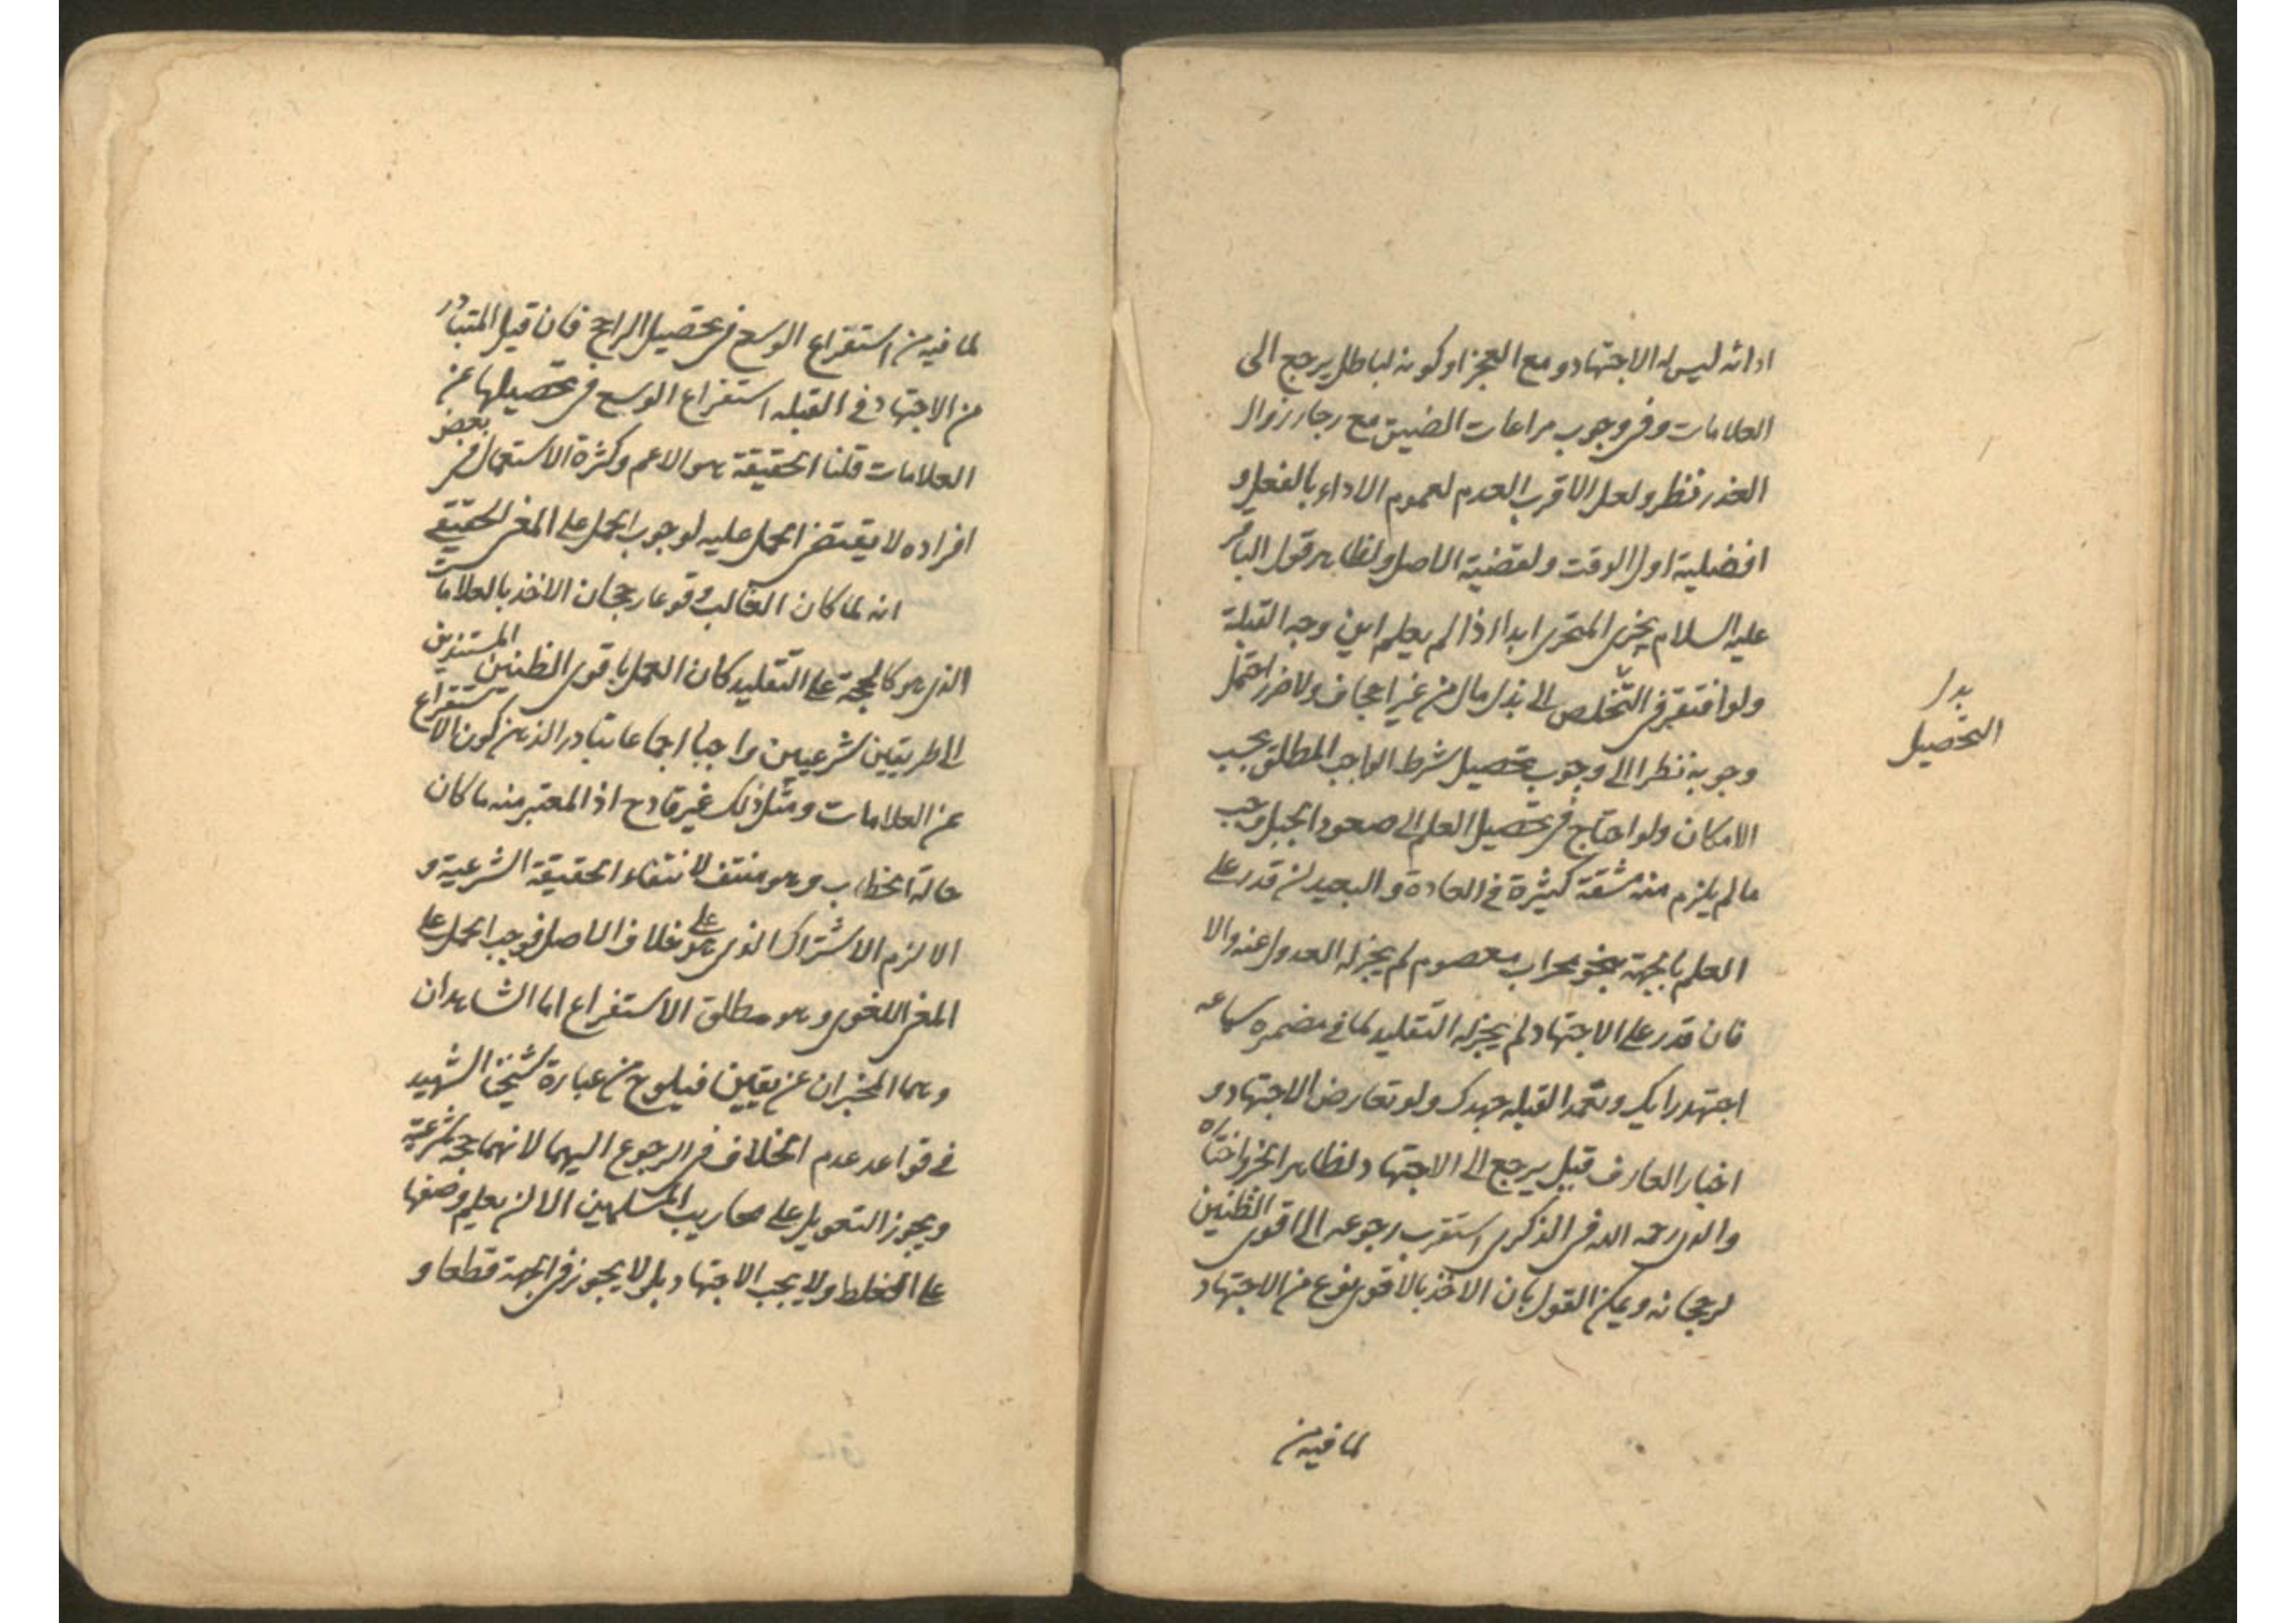 ادائه ليس له الاجتهاد و مع العجز او كونه لباطل يرجع الى
العلامات وفى وجوب مراعات الضيق مع رجاء زوال
العذر نظر ولعل الاقرب العدم لعموم الاداء بالفعل و
افضلية اول الوقت ولقضية الاصل ولظاهر قول الباقر
عليه السلام يجزى المتحرى ابدا اذا لم يعلم اين وجه القبلة
ولو افتقر فى التخلص الى بذل مال من غير اجحاف ولا ضرر احتمل
وجوبه نظرا الى وجوب تحصيل شرط الواجب المطلق بحسب
الامكان ولو احتاج فى تحصيل العلم الى صعود الجبل وجب
ما لم يلزم منه مشقة كثيرة فى العادة و البعيد ان قدر على
العلم بالجهة بنحو محراب معصوم لم يجز له العدول عنه والا
فان قدر على الاجتهاد لم يجز له التقليد لما فى مضمره سماعه
اجتهد رايك وتعمد القبله جهدك ولو تعارض الاجتهاد و
اخبار العارف قيل يرجع الى الاجتهاد لظاهر الخبر واختاره
والدى رحمه الله فى الذكرى استقرب رجوعه الى اقوى الظنين
لرجحانه ويمكن القول بان الاخذ بالاقوى نوع من الاجتهاد
لما فيه من
بدل
التحصيل
لما فيه من استفراغ الوسع فى تحصيل الراجح فان قيل المتبادر
من الاجتهاد فى القبله استفراغ الوسع فى تحصيلها عن
العلامات قلنا الحقيقة هو الاعم وكثرة الاستعمال فى بعض
افراده لا يقتضى الحمل عليه لوجوب الحمل على المعنى الحقيقى
انه لما كان الغالب وقوعا رجحان الاخذ بالعلامات
الذى هو كالحجة على التقليد كان العمل باقوى الظنين المستندين
الى طريقين شرعيين واجبا اجماعا تبادر الذهن كون الاستفراغ
عن العلامات ومثل ذلك غير قادح اذ المعتبر منه ما كان
حالة الخطاب وهو منتف لانتفاء الحقيقة الشرعية و
الا لزم الاشتراك الذى هو على خلاف الاصل فوجب الحمل على
المعنى اللغوى وهو مطلق الاستفراغ اما الشاهدان
وهما المخبران عن يقين فيلوح من عبارة شيخنا الشهيد
فى قواعد عدم الخلاف فى الرجوع اليهما لانهما حجة شرعية
ويجوز التعويل على محاريب المسلمين الا ان يعلم وضعها
على الغلط ولا يجب الاجتهاد بل لا يجوز فى الجهة قطعا و